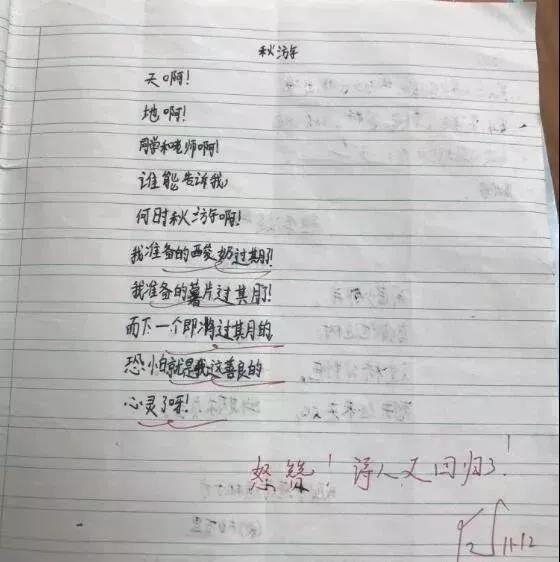 秋游
天啊!
地啊!
同学和老师啊!
谁能告诉我
何时秋游啊!
我准备的酸奶过期了!
我准备的薯片过期了!
而下一个即将过期的
恐怕就是我这善良的
心灵了呀!
怒赞!诗人又回归了!
11.12